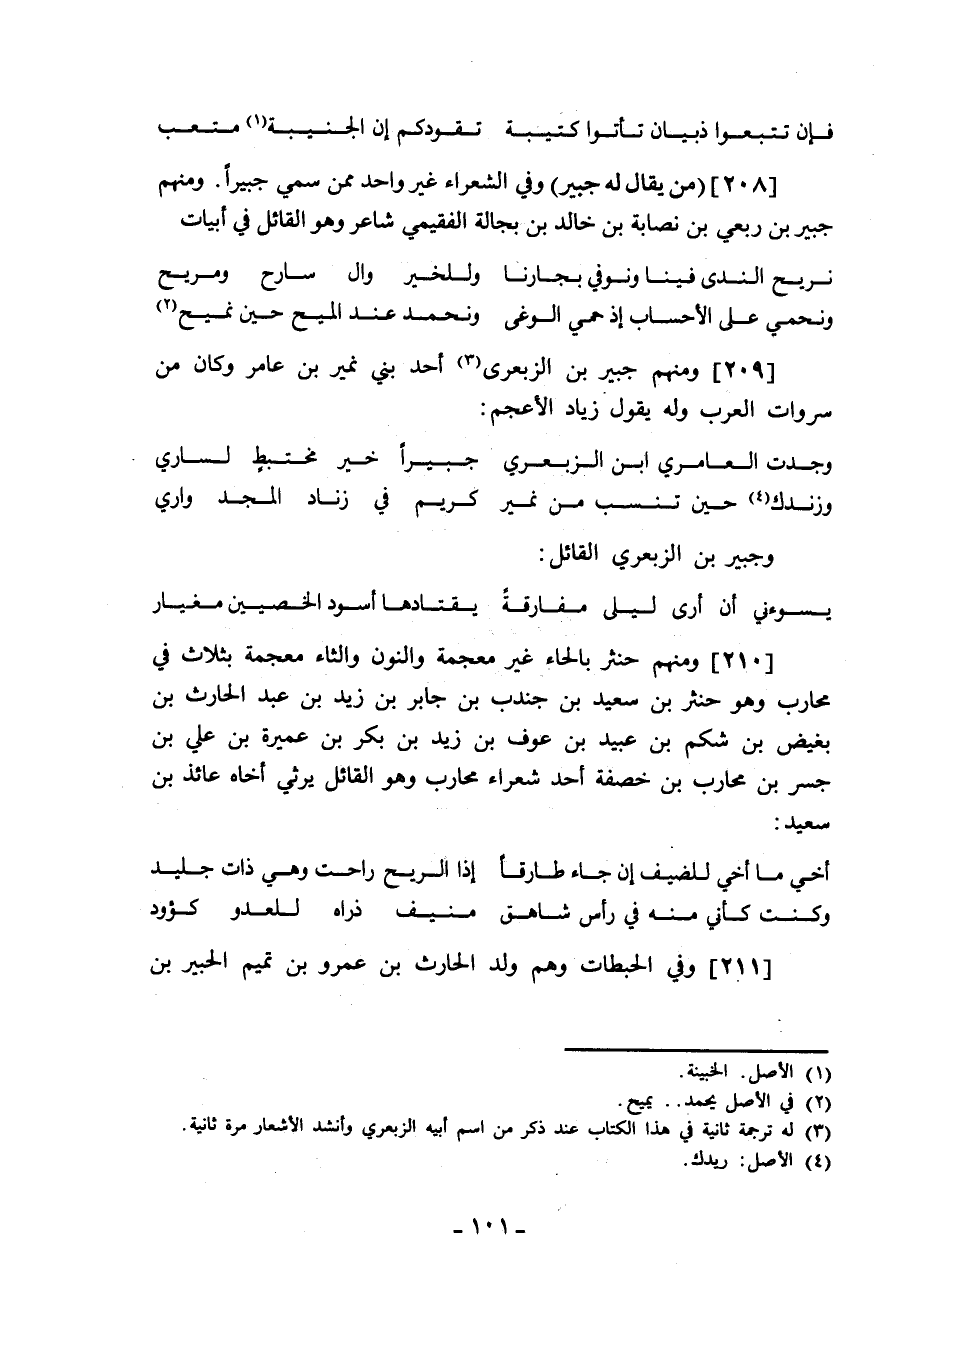 فإن تتبعوا ذبيان تأتوا كتيبة تقودكم إن الجنيبة(١) متعب
[٢٠٨] (من يقال له جبير) وفي الشعراء غير واحد ممن سمي جبيراً. ومنهم
جبير بن ربعي بن نصابة بن خالد بن بجالة الفقيمي شاعر وهو القائل في أبيات
نريح الندى فينا ونوفي بجارنا وللخير وال سارح ومريح
ونحمي على الأحساب إذ حمي الوغى ونحمد عند الميح حين نميح(٢)
[٢٠٩] ومنهم جبير بن الزبعرى(٣) أحد بني نمير بن عامر وكان من
سروات العرب وله يقول زياد الأعجم:
وجدت العامري ابن الزبعري جبيراً خير مختبطٍ لساري
وزندك(٤) حين تنسب من نمير كريم في زناد المجد واري
وجبير بن الزبعري القائل:
يسوءني أن أرى ليلى مفارقةً يقتادها أسود الخصيين مغيار
[٢١٠] ومنهم حنثر بالحاء غير معجمة والنون والثاء معجمة بثلاث في
محارب وهو حنثر بن سعيد بن جندب بن جابر بن زيد بن عبد الحارث بن
بغيض بن شكم بن عبيد بن عوف بن زيد بن بكر بن عميرة بن علي بن
جسر بن محارب بن خصفة أحد شعراء محارب وهو القائل يرثي أخاه عائذ بن
سعيد:
أخي ما أخي للضيف إن جاء طارقاً إذا الريح راحت وهي ذات جليد
وكنت كأني منه في رأس شاهق منيف ذراه للعدو كؤود
[٢١١] وفي الحبطات وهم ولد الحارث بن عمرو بن تميم الحبير بن
(١) الأصل. الخبينة.
(٢) في الأصل يحمد.. يميح.
(٣) له ترجمة ثانية في هذا الكتاب عند ذكر من اسم أبيه الزبعري وأنشد الأشعار مرة ثانية.
(٤) الأصل: ريدك.
- ١٠١ -